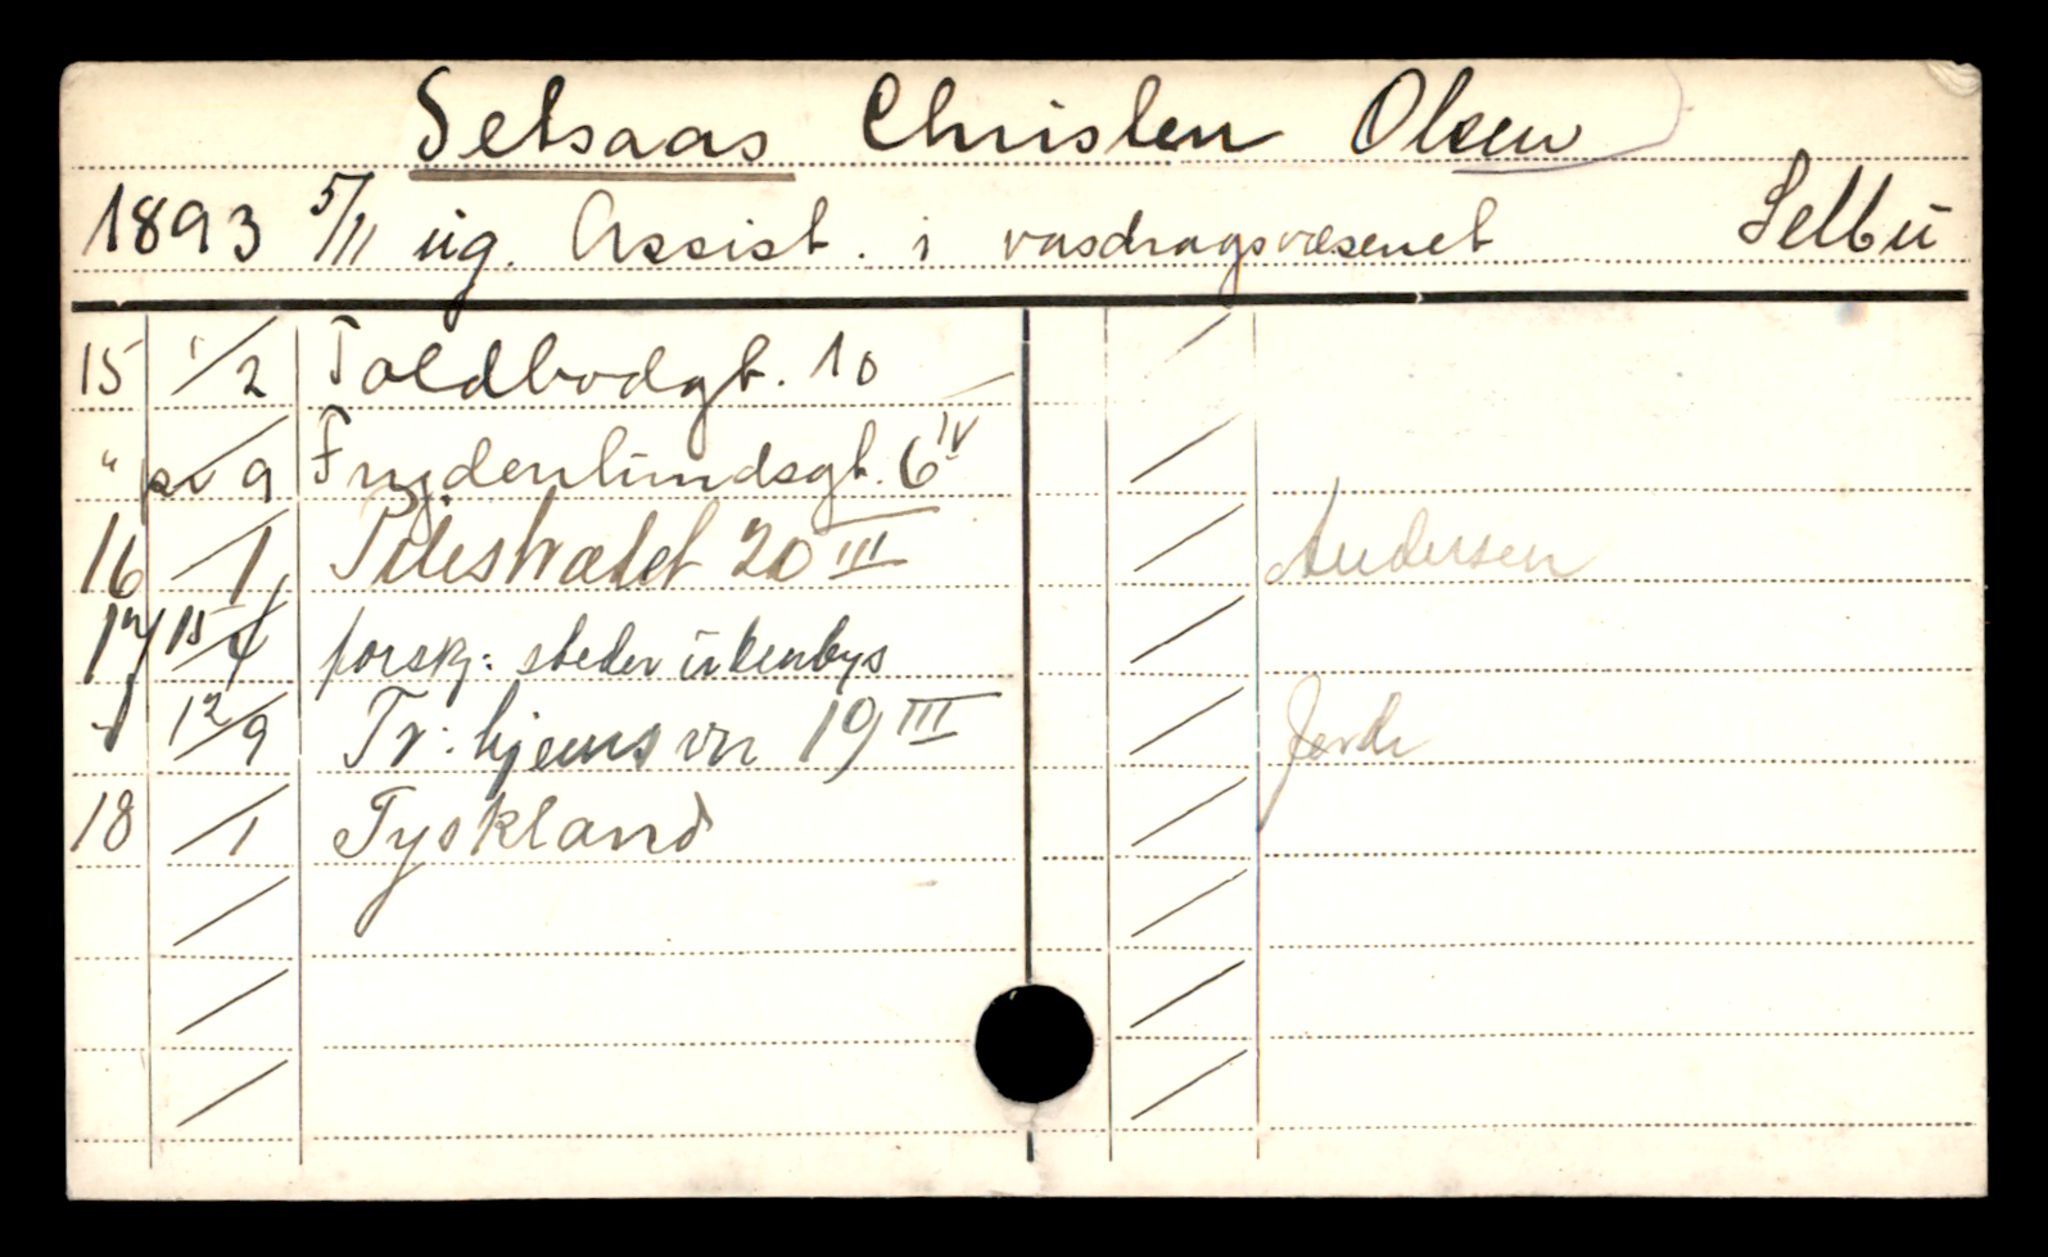 Setsaas Christen Olsen
1893 5/11 ug. Assist. i vasdragsvæsenet Selbu
15 1/2 Toldbodgt. 10
" 9 Frydenlundsgt. 6 IV
16 /1 Pilestrædet 20 III Andersen
17 15/4 forskj: steder utenbys
12/9 Tr: hjemsvn 19 III
18 /1 Tyskland